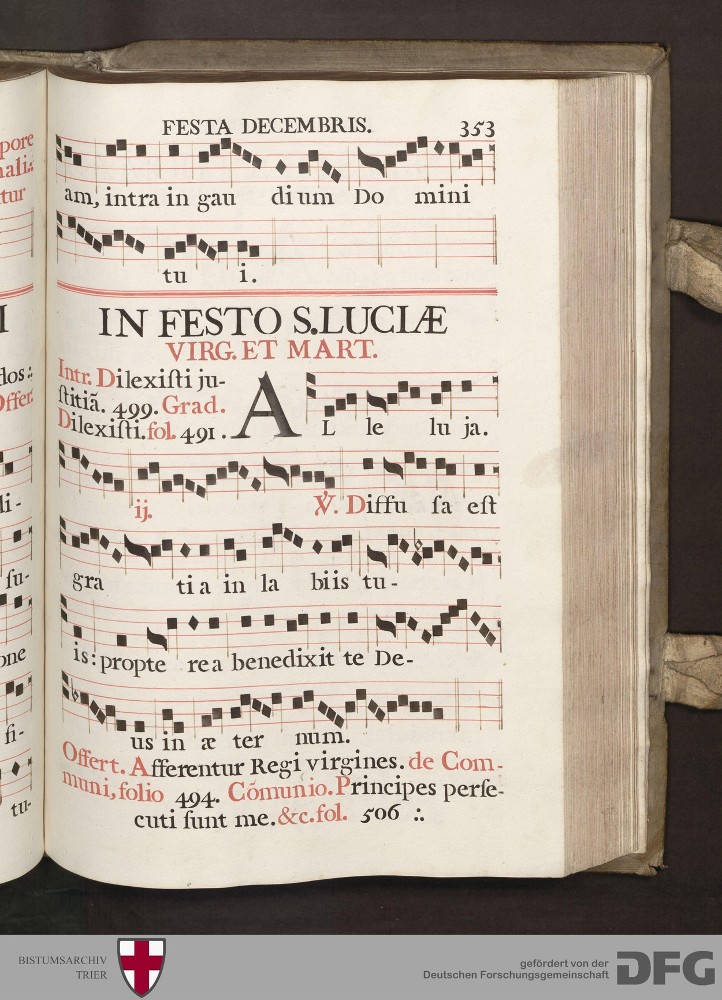 FESTA DECEMBRIS. 353
am, intra in gau dium Do mini
tu i.
IN FESTO S. LUCIÆ
VIRG. ET MART.
Intr. Dilexiſti ju-
ſtitiã. 499. Grad.
Dilexiſti. fol. 491.
AL le lu ja.
ij. ℣. Diffu ſa eſt
gra ti a in la biis tu-
is: propte rea benedixit te De-
us in æ ter num.
Offert. Afferentur Regi virgines. de Com-
muni, folio 494. Cõmunio. Principes perſe-
cuti ſunt me. &c. fol. 506 ⁖
pore
nali:
tur
I
dos:
Offer.
li-
ſu-
one
fi-
tu-
BISTUMSARCHIV
TRIER
gefördert von der
Deutschen Forschungsgemeinschaft
DFG